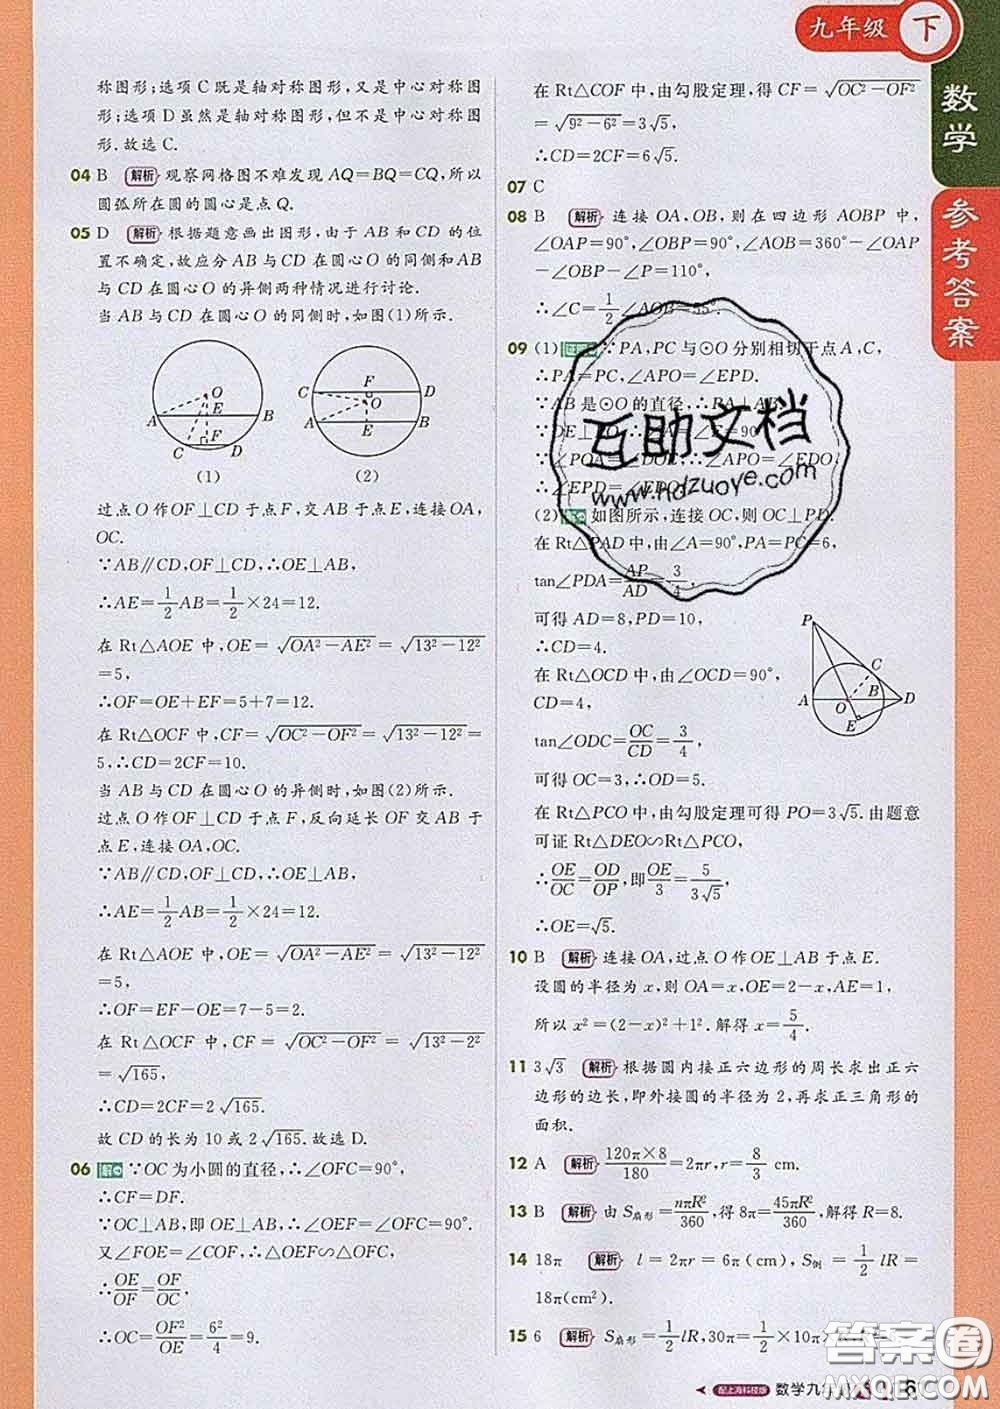 九年级 下
数学
参考答案
称图形;选项C既是轴对称图形,又是中心对称图
形;选项D虽然是轴对称图形,但不是中心对称图
形.故选C.
04 B 解析 观察网格图不难发现AQ=BQ=CQ,所以
圆弧所在圆的圆心是点Q.
05 D 解析 根据题意画出图形,由于AB和CD的位
置不确定,故应分AB与CD在圆心O的同侧和AB
与CD在圆心O的异侧两种情况进行讨论.
当AB与CD在圆心O的同侧时,如图(1)所示.
O A E B C F D
C F D O A E B
(1) (2)
过点O作OF⊥CD于点F,交AB于点E,连接OA,
OC.
∵AB∥CD,OF⊥CD,∴OE⊥AB,
∴AE=1/2AB=1/2×24=12.
在Rt△AOE中,OE=√(OA²-AE²)=√(13²-12²)
=5,
∴OF=OE+EF=5+7=12.
在Rt△OCF中,CF=√(OC²-OF²)=√(13²-12²)=
5,∴CD=2CF=10.
当AB与CD在圆心O的异侧时,如图(2)所示.
过点O作OF⊥CD于点F,反向延长OF交AB于
点E,连接OA,OC.
∵AB∥CD,OF⊥CD,∴OE⊥AB,
∴AE=1/2AB=1/2×24=12.
在Rt△AOE中,OE=√(OA²-AE²)=√(13²-12²)
=5,
∴OF=EF-OE=7-5=2.
在Rt△OCF中,CF=√(OC²-OF²)=√(13²-2²)
=√165,
∴CD=2CF=2√165.
故CD的长为10或2√165.故选D.
06 解 ∵OC为小圆的直径,∴∠OFC=90°,
∴CF=DF.
∵OC⊥AB,即OE⊥AB,∴∠OEF=∠OFC=90°.
又∠FOE=∠COF,∴△OEF∽△OFC,
∴OE/OF=OF/OC,
∴OC=OF²/OE=6²/4=9.
在Rt△COF中,由勾股定理,得CF=√(OC²-OF²)
=√(9²-6²)=3√5,
∴CD=2CF=6√5.
07 C
08 B 解析 连接OA,OB,则在四边形AOBP中,
∠OAP=90°,∠OBP=90°,∠AOB=360°-∠OAP
-∠OBP-∠P=110°,
∴∠C=1/2∠AOB=55°.
09 (1) ∵PA,PC与⊙O分别相切于点A,C,
∴PA=PC,∠APO=∠EPD.
∵AB是⊙O的直径,∴PA⊥AB.
∵DE⊥PO,∴∠A=∠E=90°.
∵∠POA=∠DOE,∴∠APO=∠EDO,
∴∠EPD=∠EDO.
(2) 如图所示,连接OC,则OC⊥PD.
在Rt△PAD中,由∠A=90°,PA=PC=6,
tan∠PDA=AP/AD=3/4,
可得AD=8,PD=10,
∴CD=4.
在Rt△OCD中,由∠OCD=90°,
CD=4,
tan∠ODC=OC/CD=3/4,
P C A O B D E
可得OC=3,∴OD=5.
在Rt△PCO中,由勾股定理可得PO=3√5.由题意
可证Rt△DEO∽Rt△PCO,
∴OE/OC=OD/OP,即OE/3=5/(3√5),
∴OE=√5.
10 B 解析 连接OA,过点O作OE⊥AB于点E.
设圆的半径为x,则OA=x,OE=2-x,AE=1,
所以x²=(2-x)²+1².解得x=5/4.
11 3√3 解析 根据圆内接正六边形的周长求出正六
边形的边长,即外接圆的半径为2,再求正三角形的
面积.
12 A 解析 120π×8/180=2πr,r=8/3 cm.
13 B 解析 由S扇形=nπR²/360,得8π=45πR²/360,解得R=8.
14 18π 解析 l=2πr=6π(cm),S侧=1/2 lR=
18π(cm²).
15 6 解析 S扇形=1/2lR,30π=1/2×10π×
互助文档
www.hdzuoye.com
配上海科技版 数学九年
答案圈
MXQE.COM